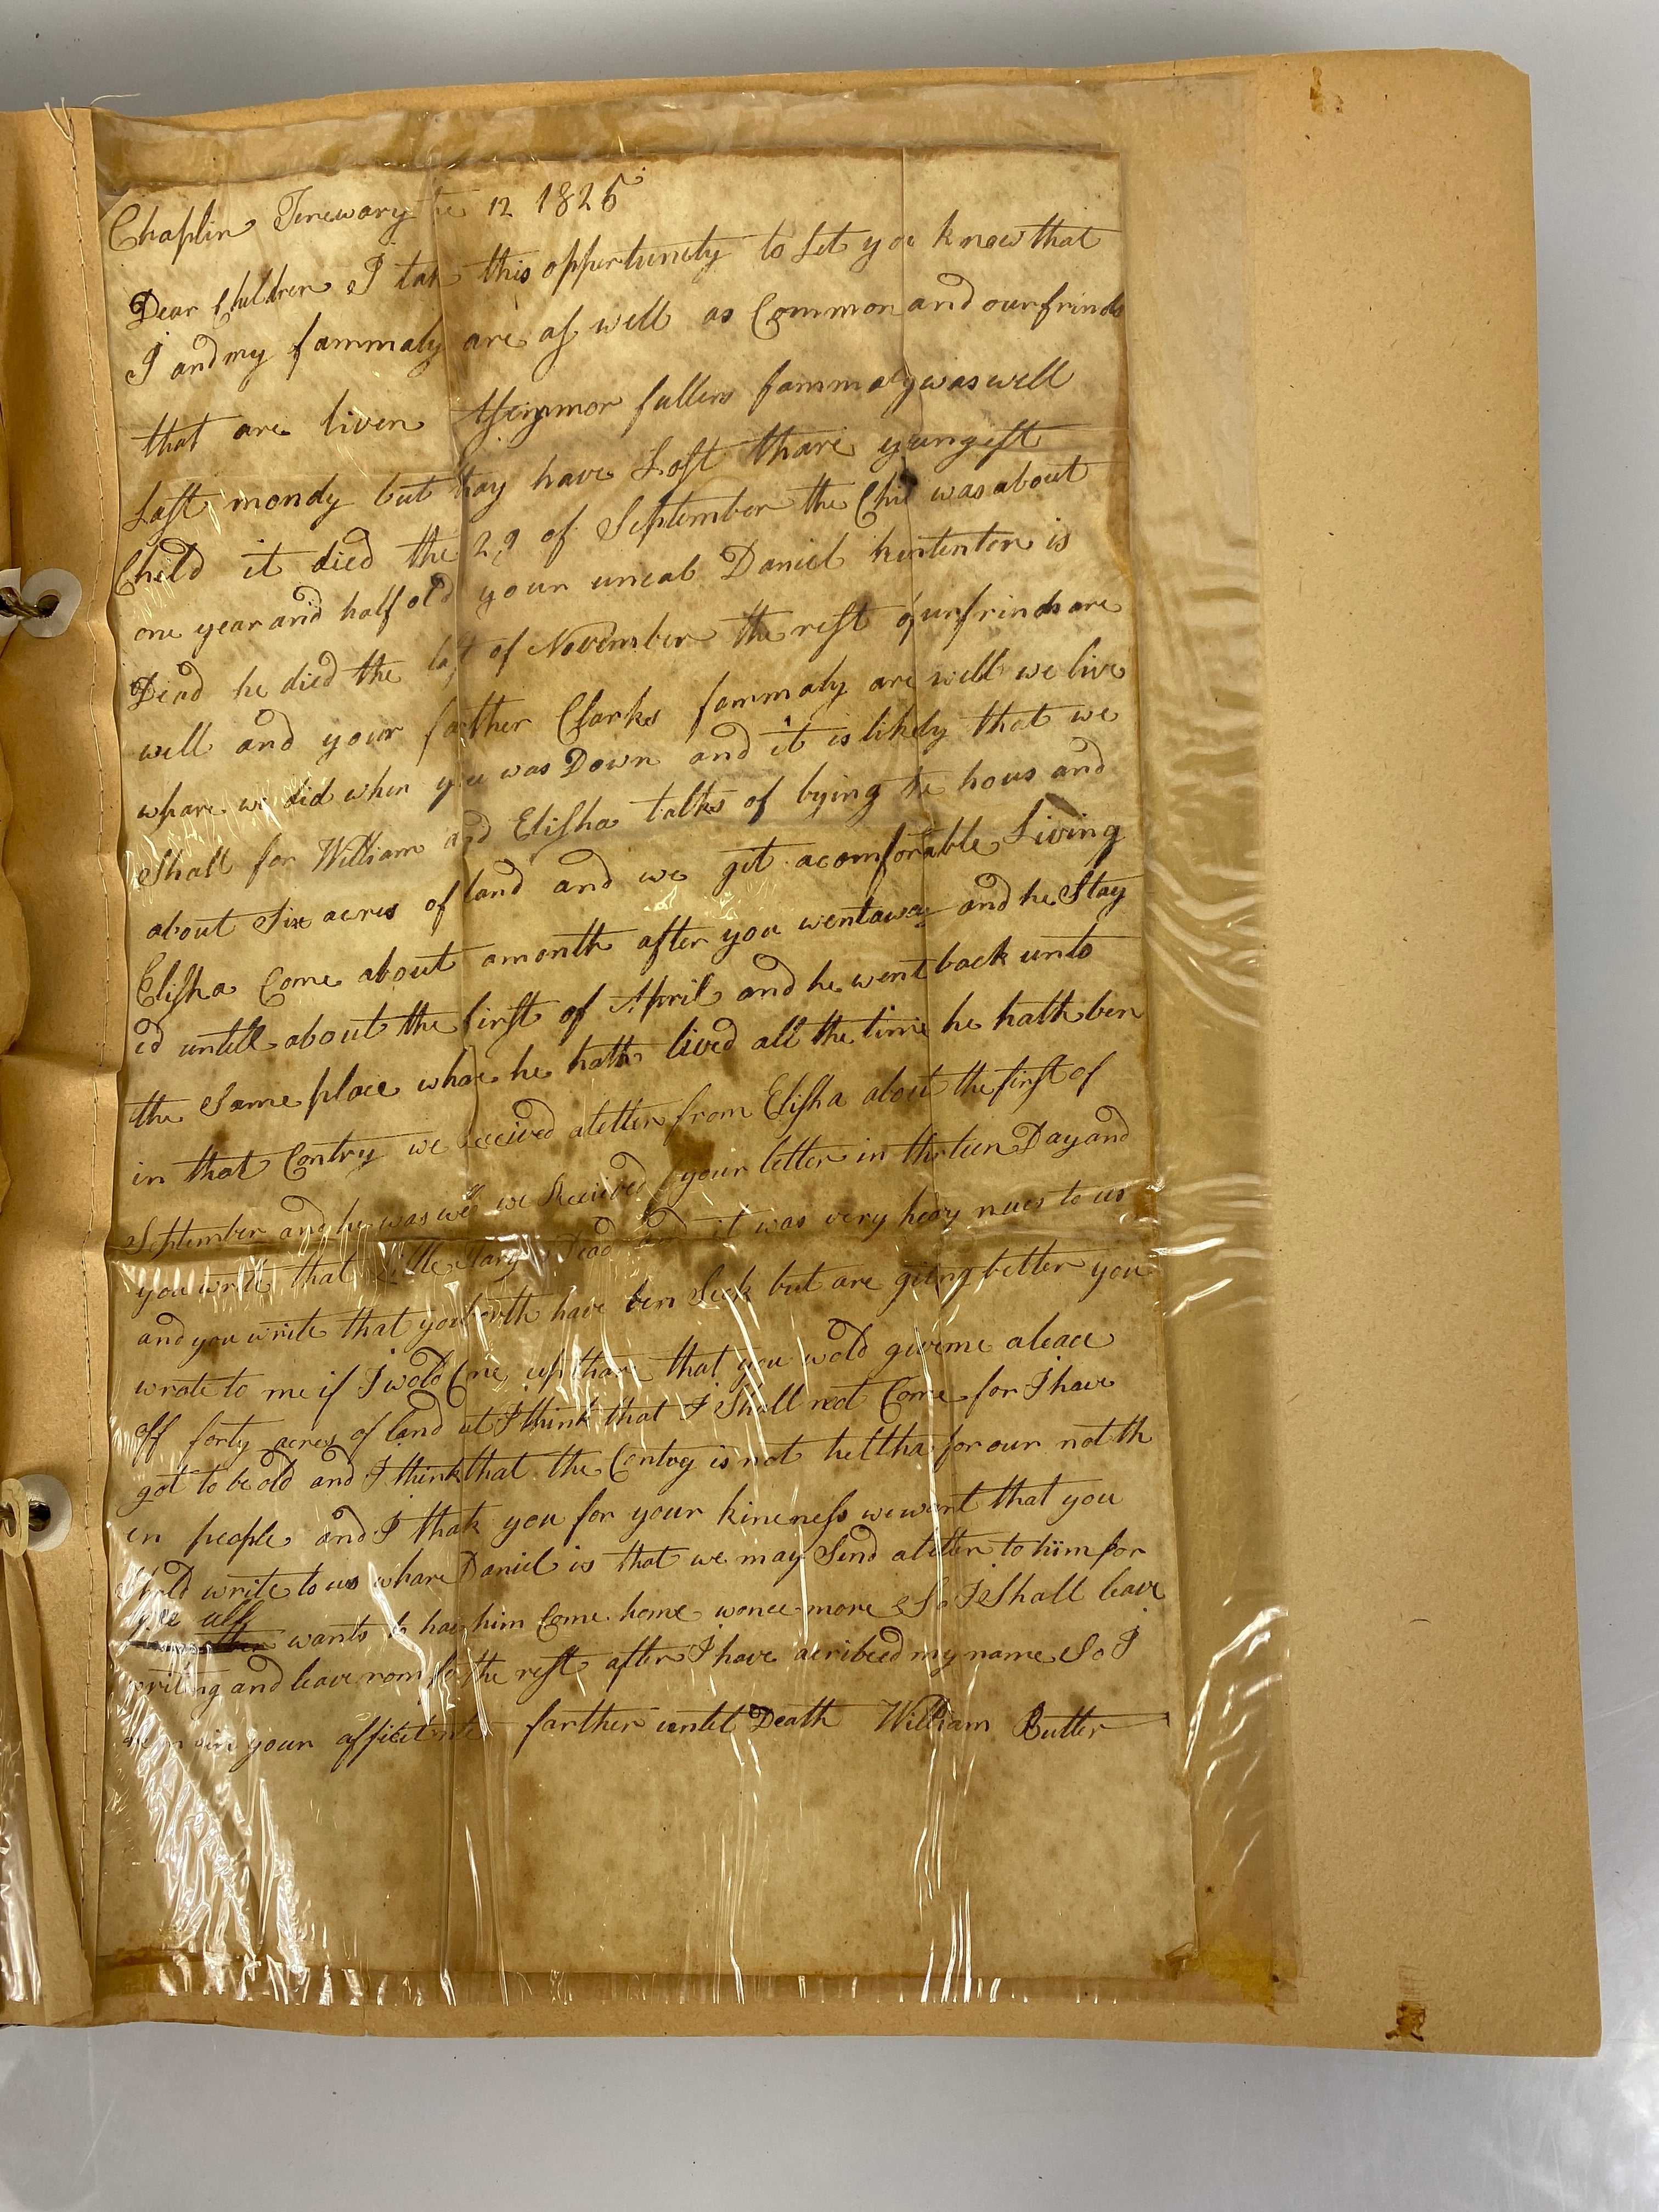 Chaplin Jenewary the 12 1825
Dear Children I tak this oppertunity to Let you know that
I and my fammaly are as well as Common and our frinds
that are liven fullers fammaly was well
Last mondy but thay have Lost thare yungest
Child it died the 29 of September the Chil was about
one year and half old your uncal Daniel is
Dead he died the last of November the rest of our frinds are
well and your farther Clarks fammaly are well we live
whare we did when you was Down and it is likely that we
Shall for William and Elisha talks of bying the hous and
about Six acres of land and we git a comforable Living
Elisha Come about a month after you went away and he Stay
ed untill about the first of April and he went back unto
the Same place whare he hath lived all the time he hath ben
in that Contry we received a letter from Elisha about the first of
September and he was well we Received your letter in thirteen Day and
you write that Little Mary is Dead and it was very hevy nues to us
and you write that you both have ben Sick but are giting better you
wrote to me if I wold Come up thare that you wold give me a leace
off forty acres of land but I think that I Shall not Come for I have
got to be old and I think that the Contry is not helthe for our north
en people and I thak you for your kineness we want that you
Shold write to us whare Daniel is that we may Send a letter to him for
we all wants to have him Come home wonce more So I Shall leave
writing and leave room for the rest after I have scribeed my name So I
remain your affictinate farther until Death William Butler